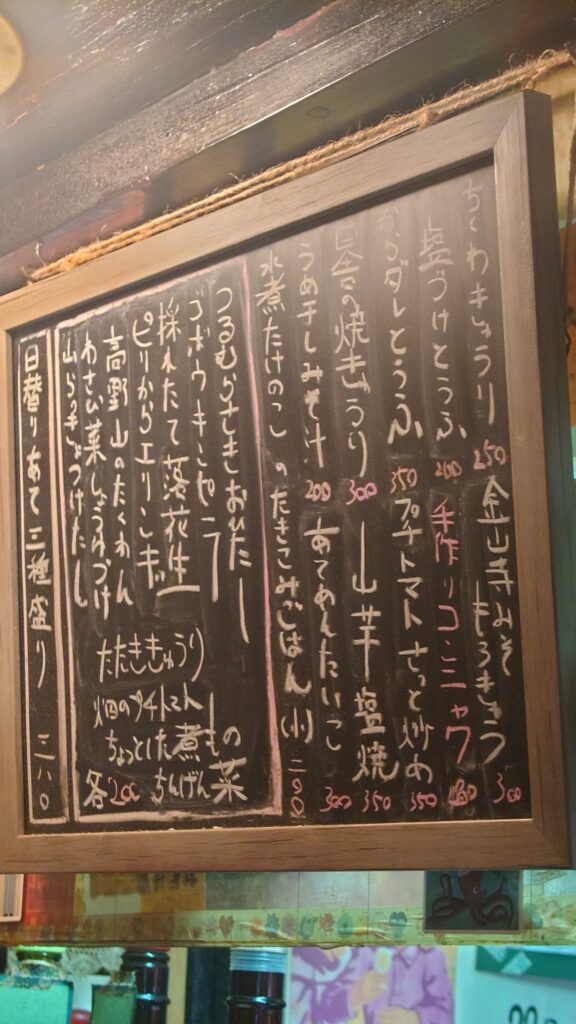 ちくわきゅうり 250
金山寺みそもろきゅう 300
塩づけとうふ 200
手作りコンニャク
からダレとうふ 350
プチトマトさっと炒め 350
の焼ぎょうり 300
山芋塩焼 350
うめ干しみそ汁 200
あてめんたいこ 300
水煮たけのこのたきこみごはん(小) 二〇〇
つるむらさきおひたし
ゴボウキンピラ
採れたて落花生
ピリからエリンギ
高野山のたくわん
わさび菜しょうゆづけ
山らっきょつけたし
もの菜
たたききゅうり
畑のプチトマト
ちょっとした煮
ちんげん
各200
日替りあて三種盛り 三八〇